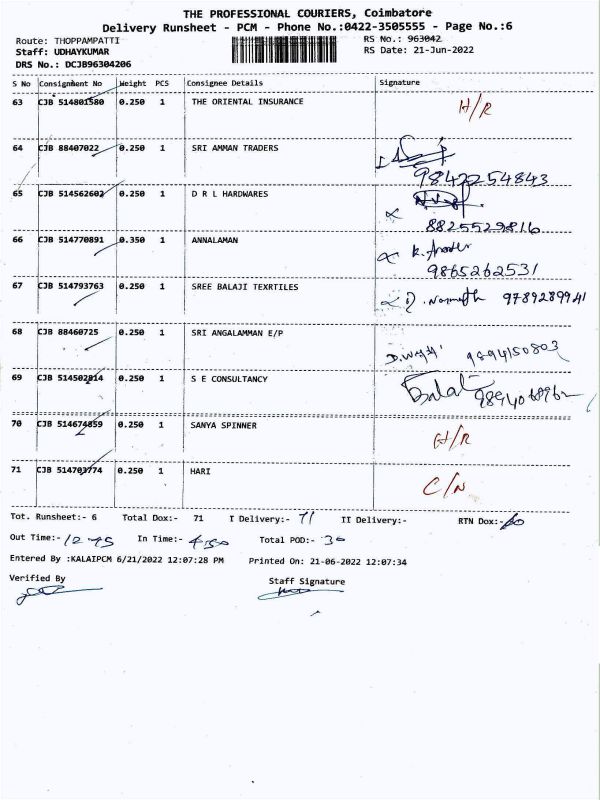 THE PROFESSIONAL COURIERS, Coimbatore
Delivery Runsheet - PCM - Phone No.:0422-3505555 - Page No.:6
Route: THOPPAMPATTI RS No.: 963042
Staff: UDHAYKUMAR RS Date: 21-Jun-2022
DRS No.: DCJB96304206
S No Consignment No Weight PCS Consignee Details Signature
63 CJB 514801580 0.250 1 THE ORIENTAL INSURANCE H/R
64 CJB 88407022 0.250 1 SRI AMMAN TRADERS
9842254843
65 CJB 514562602 0.250 1 D R L HARDWARES
8825529816
66 CJB 514770891 0.350 1 ANNALAMAN
9865262531
67 CJB 514793763 0.250 1 SREE BALAJI TEXRTILES 9789289941
68 CJB 88460725 0.250 1 SRI ANGALAMMAN E/P 9894150803
69 CJB 514502814 0.250 1 S E CONSULTANCY
70 CJB 514674859 0.250 1 SANYA SPINNER H/R
71 CJB 514703774 0.250 1 HARI C/N
Tot. Runsheet:- 6 Total Dox:- 71 I Delivery:- 71 II Delivery:- RTN Dox:-
Out Time:- 12 45 In Time:- 4.50 Total POD:-
Entered By :KALAIPCM 6/21/2022 12:07:28 PM Printed On: 21-06-2022 12:07:34
Verified By Staff Signature